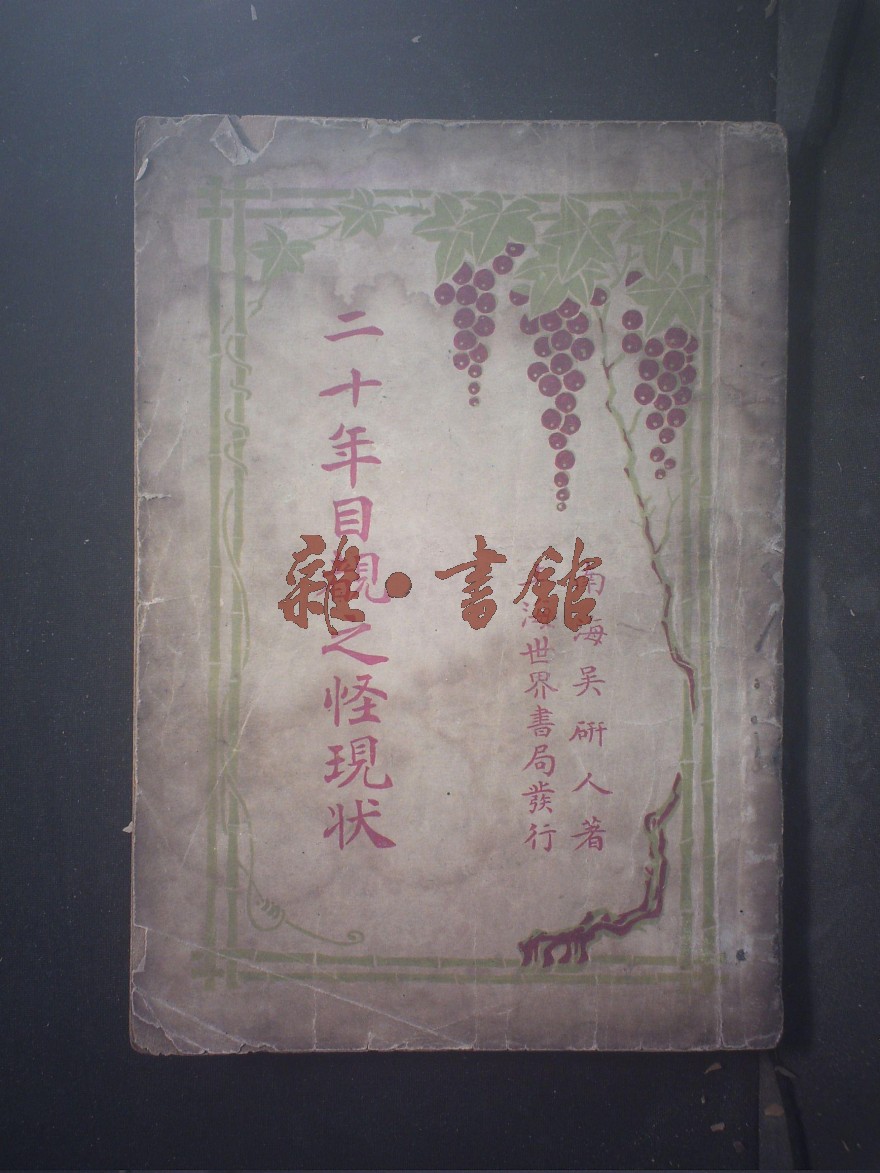 南海吴研人著
上海世界書局發行
二十年目覩之怪現状
雜·書館